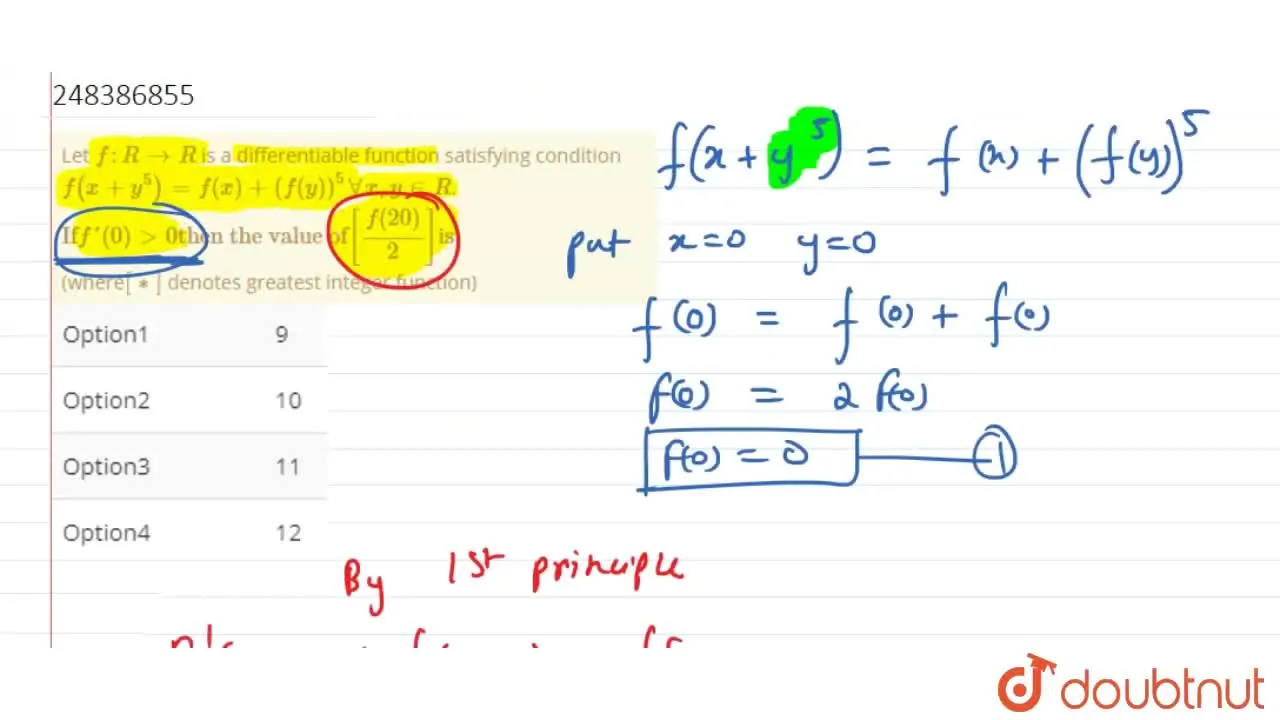 248386855
Let f : R → R is a differentiable function satisfying condition
f(x + y⁵) = f(x) + (f(y))⁵ ∀x, y ∈ R.
If f'(0) > 0 then the value of [f(20)/2] is
(where[ * ] denotes greatest integer function)
Option1 9
Option2 10
Option3 11
Option4 12
f(x + y⁵) = f(x) + (f(y))⁵
put x=0 y=0
f(0) = f(0) + f(0)
f(0) = 2 f(0)
f(0) = 0 ①
By 1st principle
doubtnut